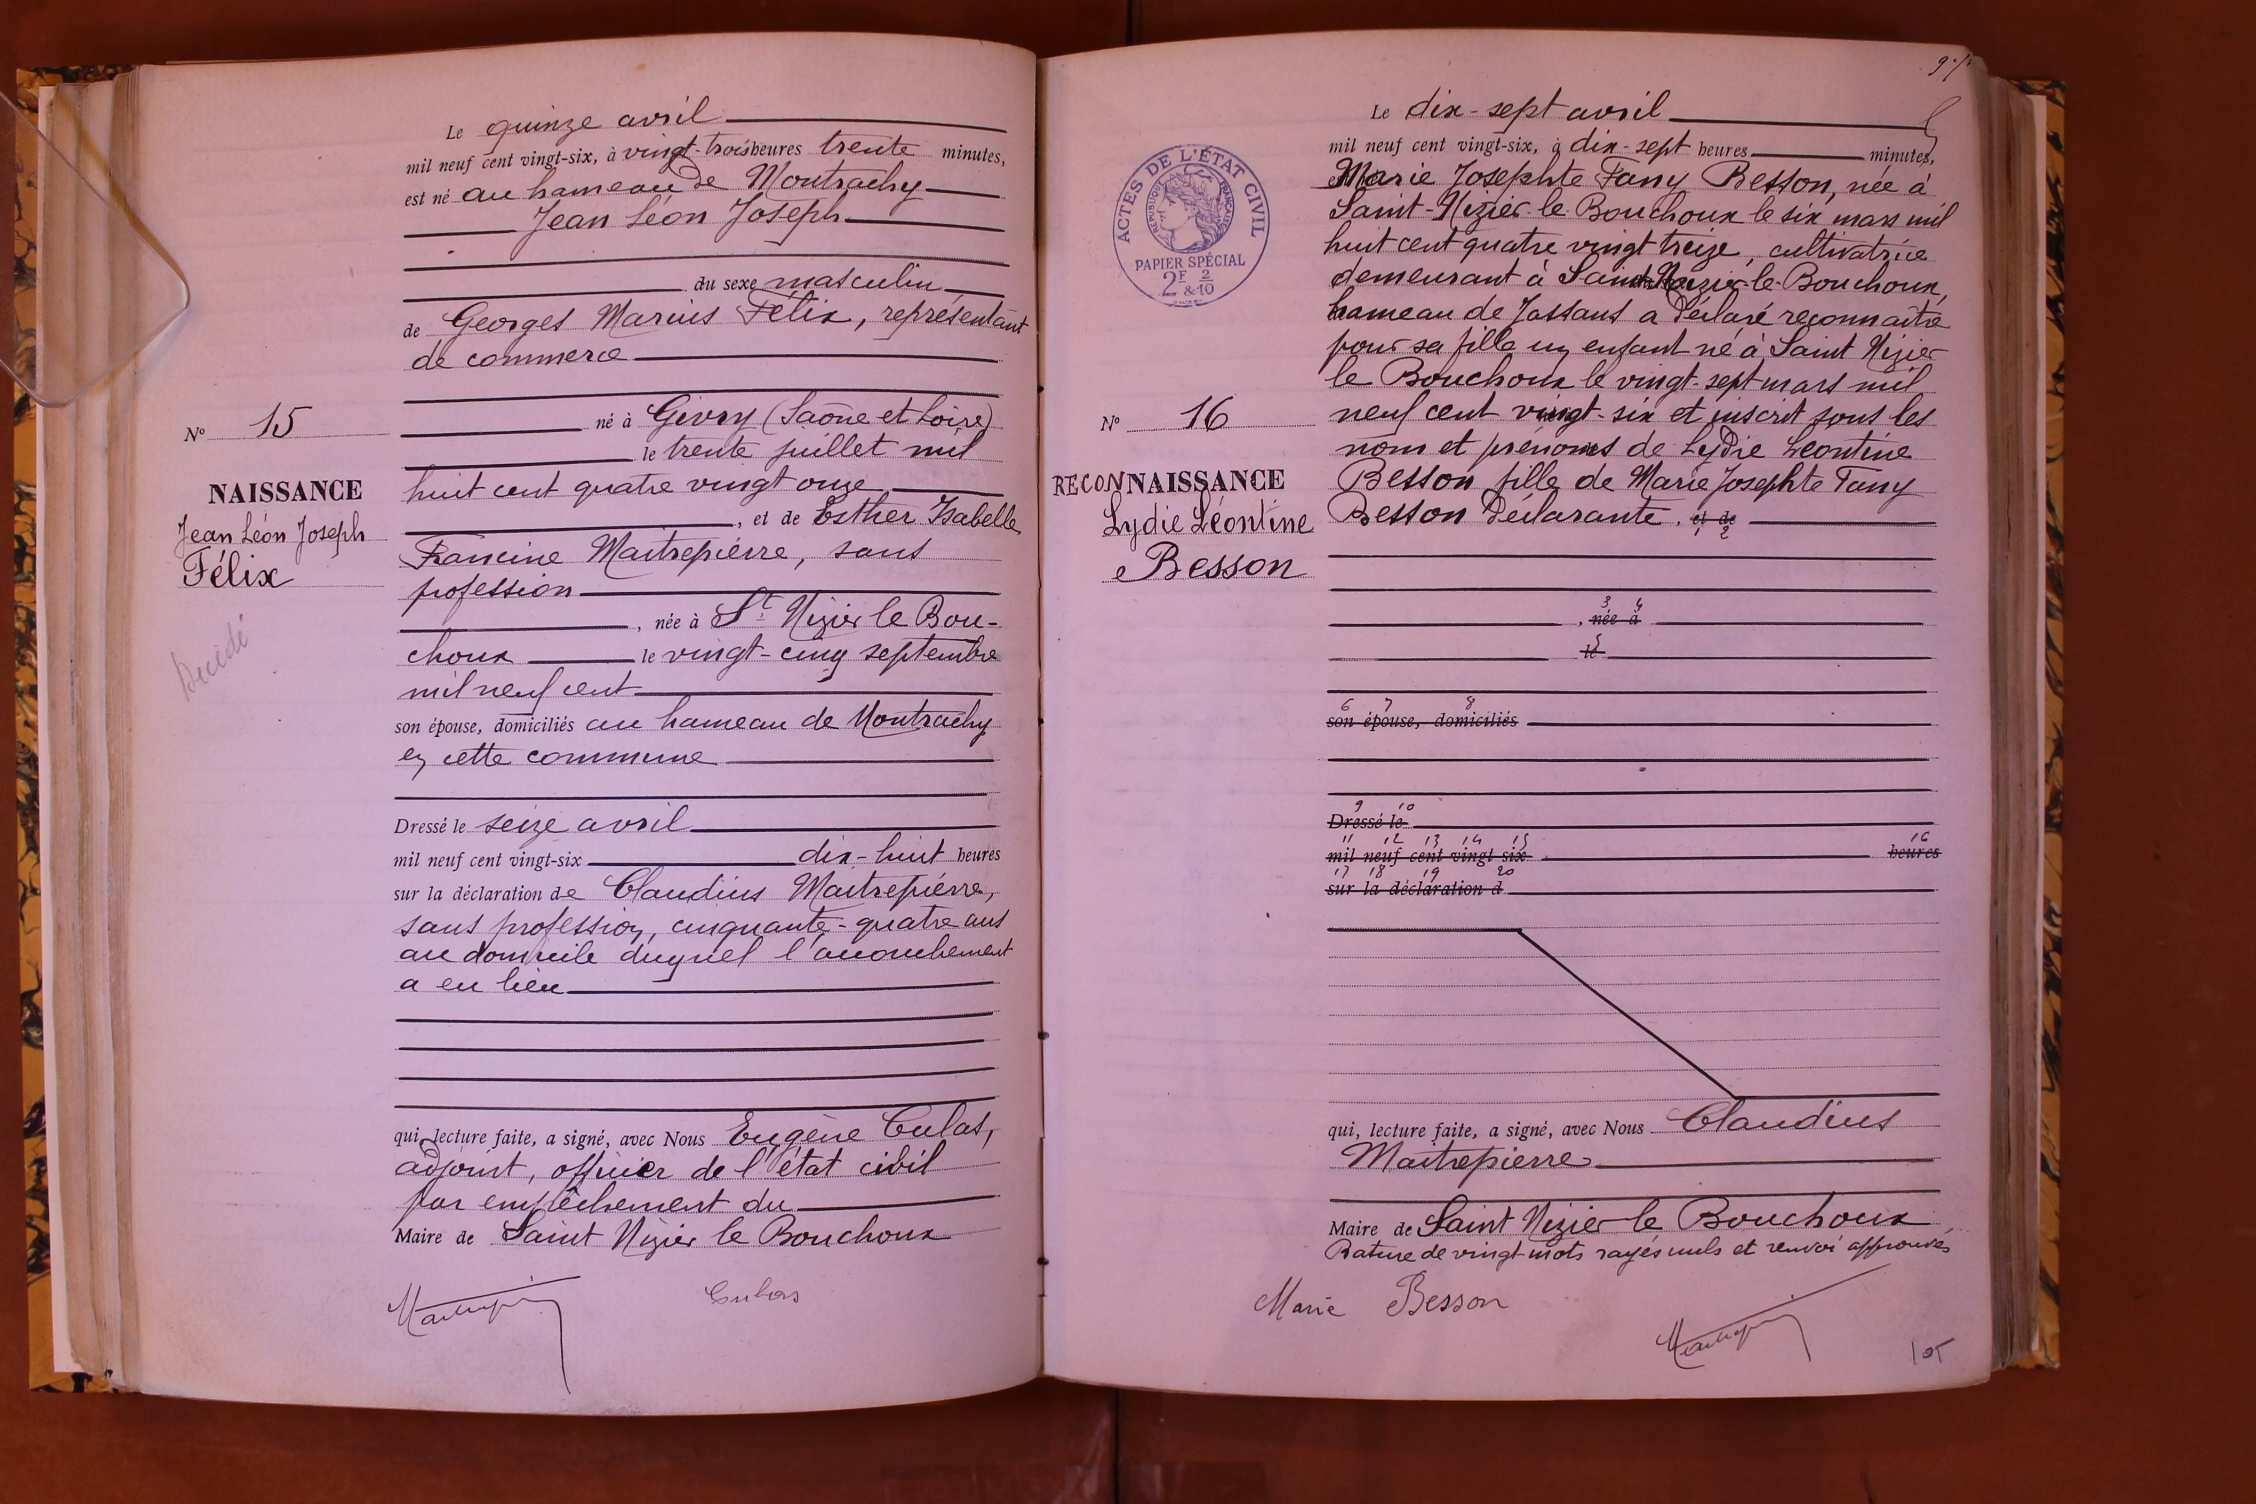 Le quinze avril
mil neuf cent vingt-six, à vingt-trois heures trente minutes,
est né au hameau de Montrachy
Jean Léon Joseph
du sexe masculin
de Georges Marius Félix, représentant
de commerce
né à Givry (Saône et Loire)
le trente juillet mil
huit cent quatre vingt onze
, et de Esther Isabelle
Francine Maitrepierre, sans
profession
, née à St Nizier le Bou-
choux le vingt-cinq septembre
mil neuf cent
son épouse, domiciliés au hameau de Montrachy
en cette commune
Dressé le seize avril
mil neuf cent vingt-six dix-huit heures
sur la déclaration de Claudius Maitrepierre,
sans profession, cinquante-quatre ans
au domicile duquel l'accouchement
a eu lieu
qui, lecture faite, a signé, avec Nous Eugène Culas,
adjoint, officier de l'état civil
par empêchement du
Maire de Saint Nizier le Bouchoux
No 15
NAISSANCE
Jean Léon Joseph
Félix
Décédé
Le dix-sept avril
mil neuf cent vingt-six, à dix-sept heures minutes,
Marie Josephte Fany Besson, née à
Saint-Nizier-le Bouchoux le six mars mil
huit cent quatre vingt treize, cultivatrice
demeurant à Saint-Nizier-le-Bouchoux,
hameau de Jassans a déclaré reconnaître
pour sa fille un enfant né à Saint Nizier
le Bouchoux le vingt-sept mars mil
neuf cent vingt-six et inscrit sous les
nom et prénoms de Lydie Léontine
Besson fille de Marie Josephte Fany
Besson déclarante. et de
1 2
3 4
, née à
5
le
6 7 8
son épouse, domiciliés
9 10
Dressé le
11 12 13 14 15 16
mil neuf cent vingt-six heures
17 18 19 20
sur la déclaration d
qui, lecture faite, a signé, avec Nous Claudius
Maitrepierre
Maire de Saint Nizier le Bouchoux
Rature de vingt mots rayés nuls et renvoi approuvés
Marie Besson
105
No 16
RECONNAISSANCE
Lydie Léontine
Besson
ACTES DE L'ÉTAT CIVIL
RÉPUBLIQUE FRANÇAISE
PAPIER SPÉCIAL
2F & 2/10